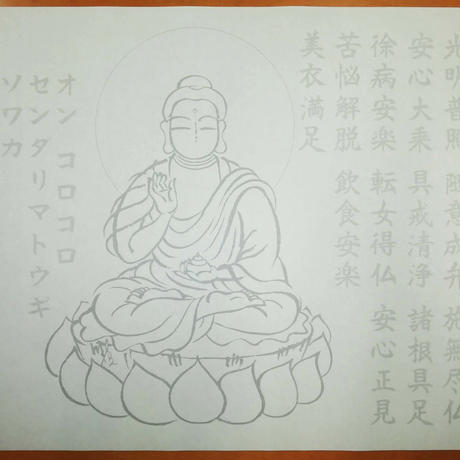 光明普照 随意成弁 施無尽仏
安心大乗 具戒清浄 諸根具足
徐病安楽 転女得仏 安心正見
苦悩解脱 飲食安楽
美衣満足
オン コロコロ
センダリマトウギ
ソワカ